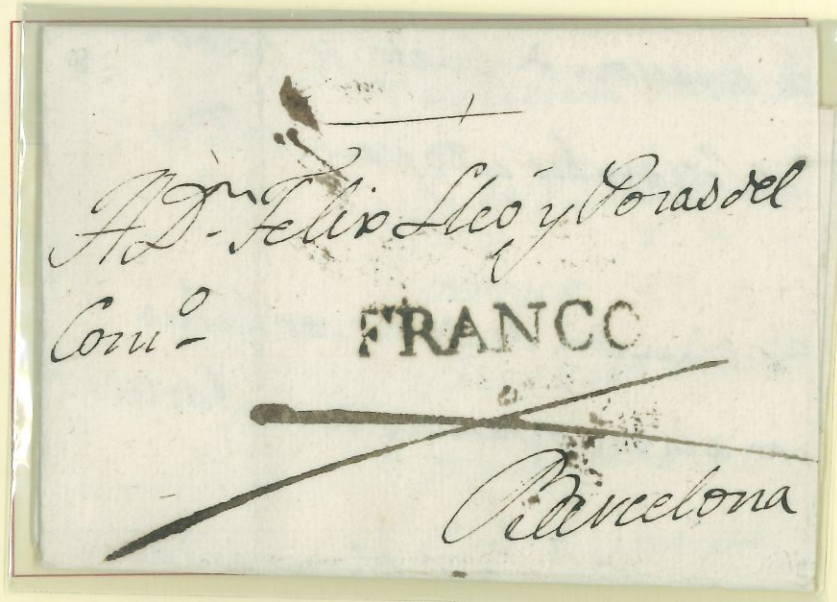 A Dn. Felix Lleó y Poras del
Como
FRANCO
Barcelona